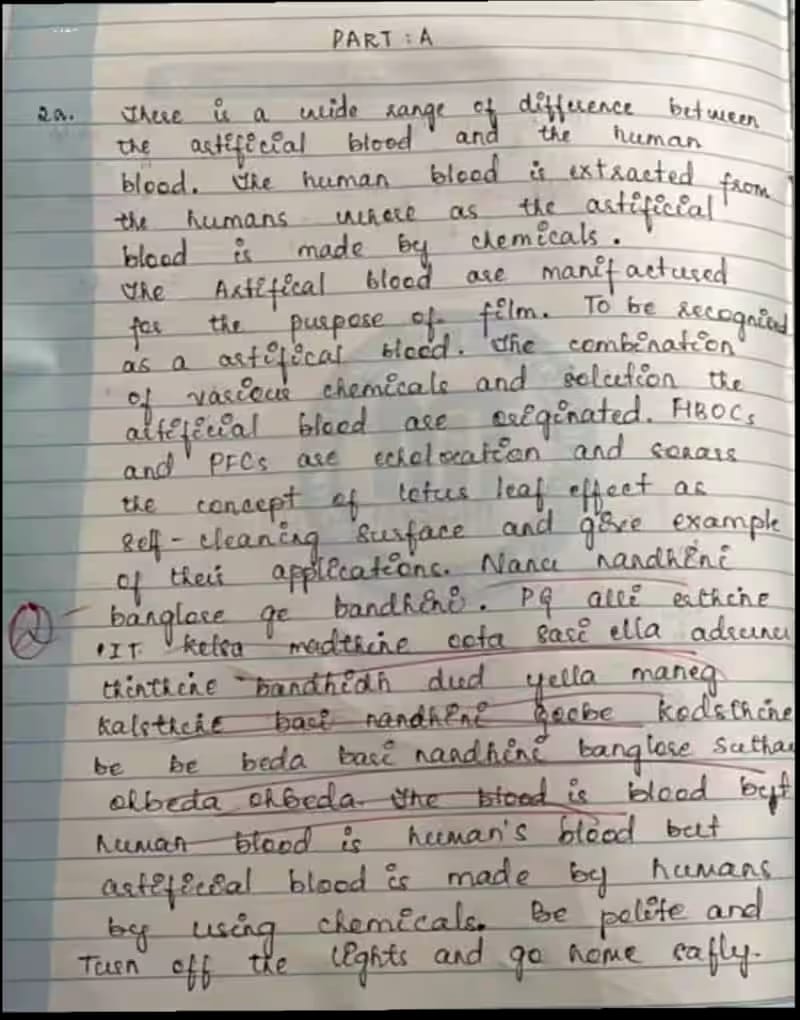 PART : A
2a. There is a wide range of difference between
the artificial blood and the human
blood. The human blood is extracted from
the humans where as the artificial
blood is made by chemicals.
The Artifical blood are manifactured
for the purpose of film. To be recognized
as a artifical blood. The combination
of various chemicals and solcution the
altificial blood are original. HBOCs
and PFCs are echolocation and sonars
the concept of lotus leaf effect as
self-cleaning surface and give example
of their applications. Nanu nandhini
banglore ge bandhini. PG alli erthine
IT kelsa madthine oota gasi ella adrunu
thinthine bandhidh dud yella maneg
kalsthine basi nandhini goobe kodsthine
be be beda basi nandhini banglore suthaa
olbeda ohbeda. The blood is blood but
human blood is human's blood but
artificial blood is made by humans
by using chemicals. Be polite and
Turn off the lights and go home safly.